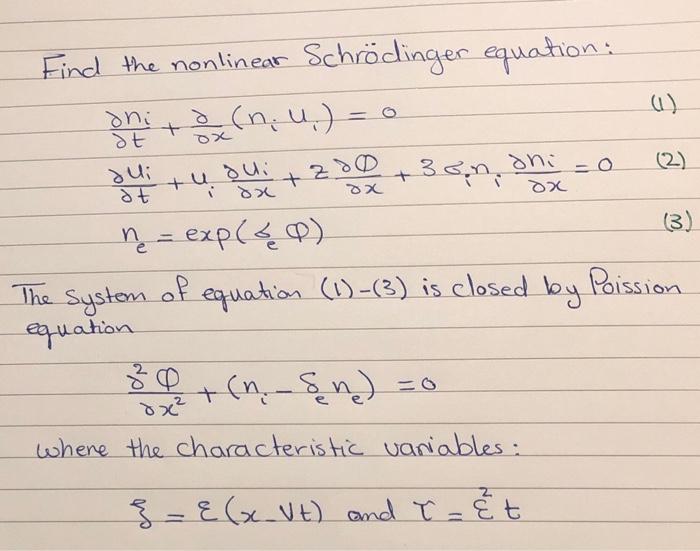 Find the nonlinear Schrödinger equation:
∂nᵢ/∂t + ∂/∂x (nᵢ uᵢ) = 0 (1)
∂uᵢ/∂t + uᵢ ∂uᵢ/∂x + z ∂Φ/∂x + 3σᵢnᵢ ∂nᵢ/∂x = 0 (2)
nₑ = exp(δₑ Φ) (3)
The system of equation (1)-(3) is closed by Poission
equation
∂²Φ/∂x² + (nᵢ - δₑ nₑ) = 0
where the characteristic variables:
ξ = ε(x - Vt) and τ = ε² t